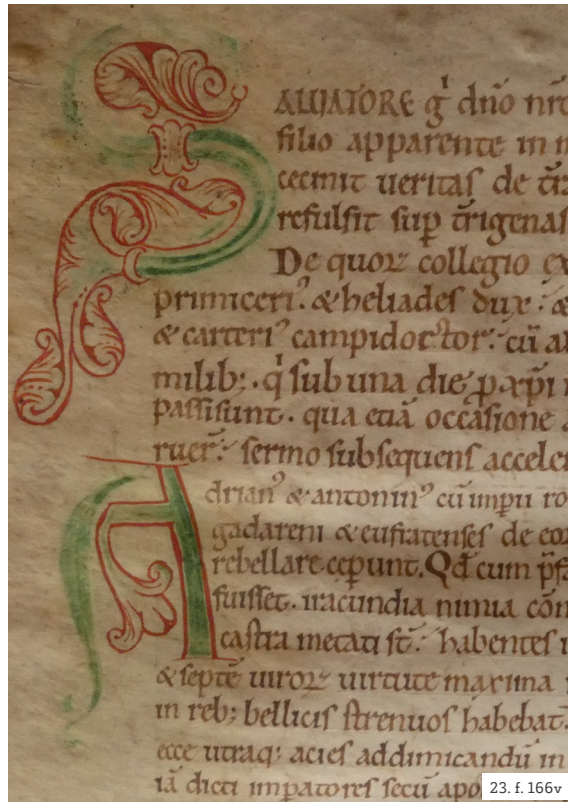 SALUATORE gͥ dn̄o nr̄o
filio apparente in
cecinit ueritas de
refulsit sup̄ t̄rigenas
De quoꝝ collegio
primiceriꝰ. & heliades dux:
& carteriꝰ campidoctor: cū
milib;. qͥ sub una die ꝓ xp̄i
passi sunt. qua etiā occasione
ruer̄: sermo subsequens
Adrianꝰ & antoninꝰ cū
gadareni & eufratenses de
rebellare cep̄unt. Qd̄ cum
fuisset. iracundia nimia
castra metati st̄: habentes
& septē uiroꝝ uirtute maxima
in reb; bellicis strenuos habebat.
ecce utraq; acies ad dimicandū in
iā dicti imꝑatores secū
23. f. 166v